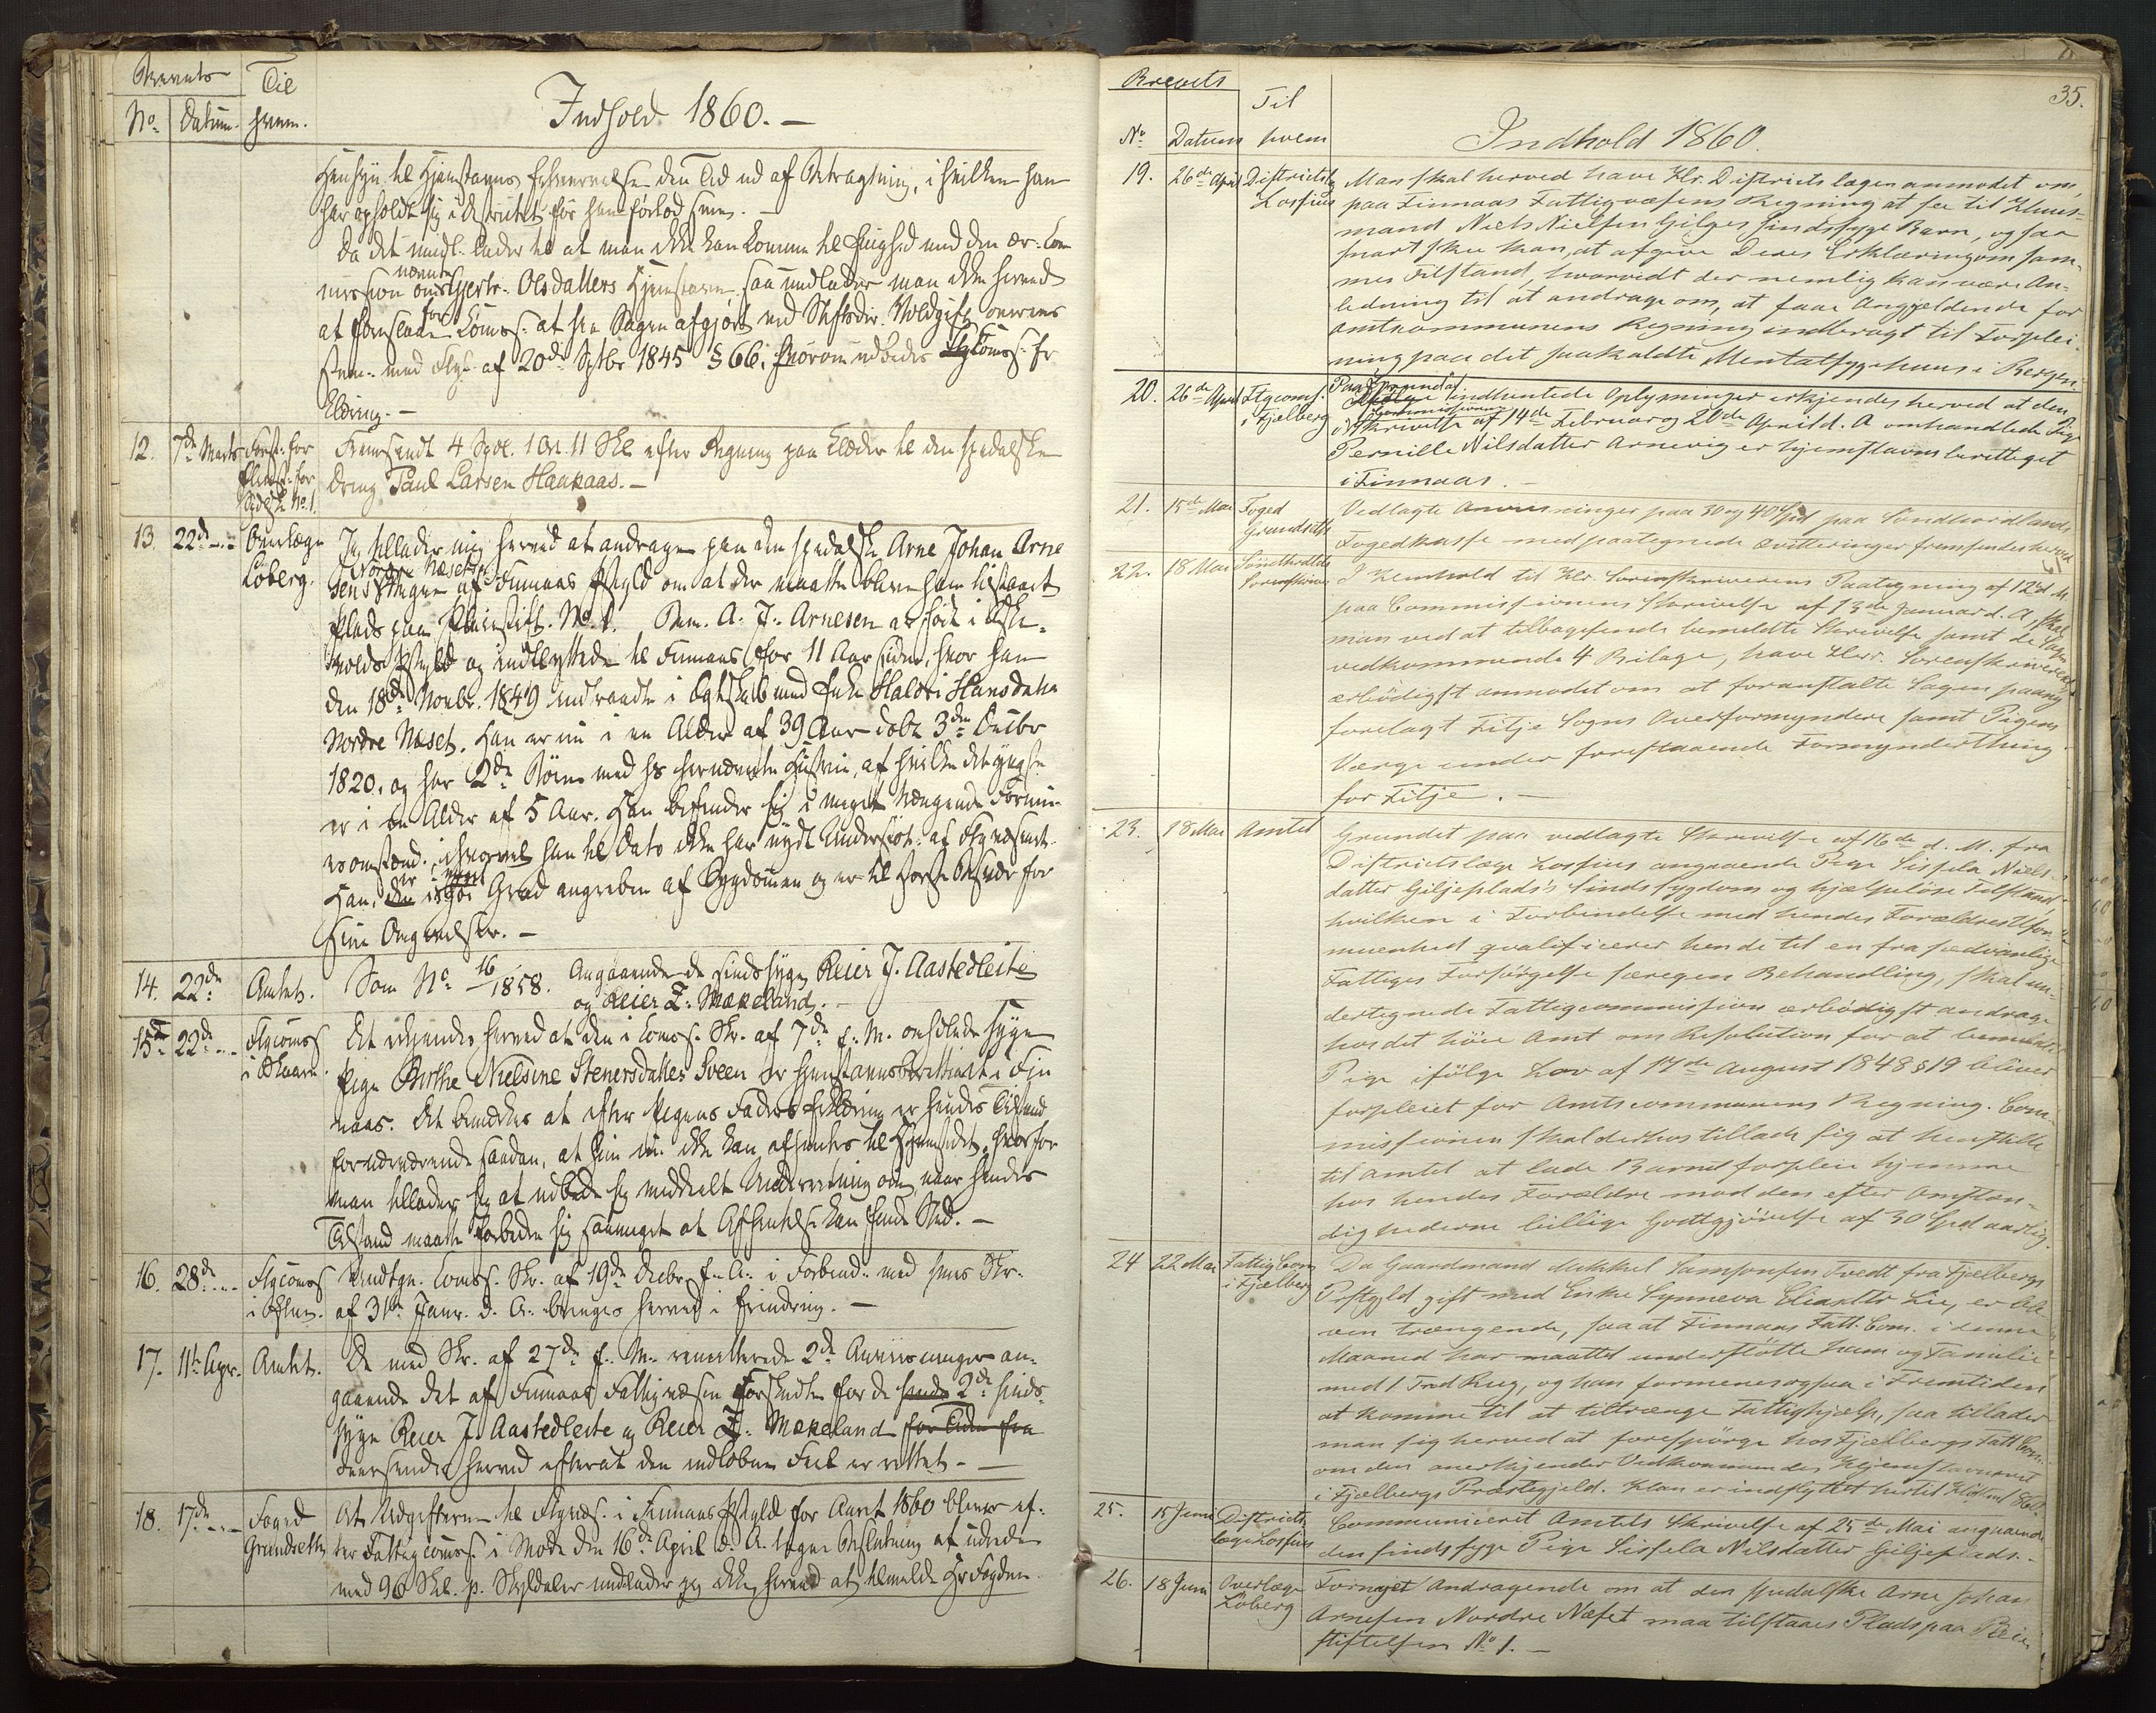 Brevets
Til
No. Datum. hvem.
Indhold 1860. —
Hensyn til Hjemstavns Erhvervelse den Tid ud af Betragtning, i hvilken han
har opholdt sig i Distriktet før han forlod
Da det imidl. lader til at man ikke kan komme til Enighed med den ær. Com
mission om nævnte Gjertr. Olsdatters Hjemstavn, saa undlader man ikke herved
at foreslaae for Comss. at faa Sagen afgjort ved Voldgift overens
stem. med af 20de Septbr 1845 § 66, hvorom udbedes Comss. Er
klæring. —
12. 7de Marts
Fremsendt 4 Spd. 1 Ort 11 Skl efter Regning paa Klæder til den spedalske
Dreng Paul Larsen Haakaas. —
13. 22de — Overlæge Løberg.
Jeg tillader mig herved at andrage paa den spedalske Arne Johan Arne
sens Nordre Næset af Finnaas Pstgjld om at der maatte blive ham tilstaaet
Plads paa Pleiestift. No. 1. Bem. A. J. Arnesen er født i
Pstgjld og indflyttede til Finnaas for 11 Aar siden, hvor han
den 18de Novbr. 1849 indtraadte i Egteskab med Enke Haldri Hansdatter
Nordre Næset. Han er nu i en Alder af 39 Aar døbt 3de Decbr
1820, og har 2de Børn med hs ovennævnte Hustru, af hvilke det yngste
er i en Alder af 5 Aar. Han befinder sig i meget trængende Formu-
esomstænd. ihvorvel han til Dato ikke har nydt Understøt. af
Han er i høi Grad angreben af Sygdommen og er til Byrde for
sine Omgivelser. —
14. 22de Amtet.
Som No. 16/1858. Angaaende de sindssyge Reier J. Aastedleite
og Reier Z. Mækeland. —
15de 22de — Ftgcomss
Det erkjendes herved at den i Comss. Skr. af 7de f. M. omhdlede syge
Pige Birthe Nielsine Stenersdatter Sveen er hjemstavnsberettiget i Fin
naas. Det bemærkes at efter Pigens Faders Erklæring er hendes Tilstand
fornærværende saadan, at hun nu ikke kan afhentes til Hjemstedet, hvorfor
man tillader sig at udbede sig meddeelt Underretning om, naar hendes
Tilstand maatte forbedre sig saameget at Afhentelse kan finde Sted. —
16. 28de — Ftgcomss
Comss. Skr. af 19de Decbr f. A. i Forbind. med hens Skr.
af 31te Janr. d. A. bringes herved i Erindring. —
17. 11te Apr. Amtet.
De med Skr. af 27de f. M. remitterede 2de Anviisninger an-
gaaende det af Finnaas Fattigvæsen Forskudte for de 2de sinds-
syge Reier J. Aastedleite og Reier Z. Mækeland for Tiden fra
tilbagesendes herved efterat den indløbne Feil er rettet. —
18. 17de — Foged Grundseth
At Udgifterne til Ftgvæs. i Finnaas Pstgjld for Aaret 1860 bliver ef-
ter Fattigcomss. i Møde den 16de April d. A. tagne Beslutning at udrede
med 96 Skl. p. Skylddaler undlader jeg ikke herved at tilmelde Hr Fogden.
35.
Brevets
Til
No. Datum hvem
Indhold 1860.
19. 26de April Districtslg Losfius
Man skal herved have Hr. Districtslægen anmodet om,
paa Finnaas Fattigvæsens Regning at see til Huus-
mand Niels Nielsen Gilges sindssyge Barn, og saa
snart skee kan, at afgive Deres Erklæring om sam-
mes Tilstand, hvorvidt der nemlig kan være An-
ledning til at andrage om, at faae Angjeldende for
Amtcommunens Regning indbragt til Forplei-
ning paa det saakaldte Mentalsygehuus i Bergen.
20. 26de April Ftgcomss. i Fjelberg
Paa Grund af
indhentede Oplysninger erkjendes herved at den
i Commissionens
Skrivelse af 14de Februar og 20de April d. A omhandlede Pige
Pernille Nilsdatter Arnevig er hjemstavnsberettiget
i Finnaas. —
21. 15de Mai Foged Grundseth
Vedlagte Anvisninger paa 30 og 40 Spd paa Søndhordlands
Fogedkasse med paategnede Qvitteringer fremsendes herved
22. 18 Mai Søndhordlds Sorenskriver
I Henhold til Hr. Sorenskriverens Paategning af 12 d. M.
paa Commissionens Skrivelse af 13de Januar d. A skal
man ved at tilbagesende bemeldte Skrivelse samt de Sagen
vedkommende 4 Bilage, have Herr. Sorenskriveren
ærbødigst anmodet om at foranstalte Sagen paany
forelagt Fitje Sogns Overformyndere samt Pigens
Værge under forestaaende Formynderthing
for Fitje. —
23. 18 Mai Amtet
Grundet paa vedlagte Skrivelse af 16de d. M. fra
Districtslæge Losfius angaaende Pige Sissela Niels-
datter Giljeplads's Sindssygdom og hjælpeløse Tilstand
hvilken i Forbindelse med hendes Forældres Ufor-
muenhed qvalificerer hende til en fra sædvanlige
Fattiges Forsørgelse særegen Behandling, skal un-
dertegnede Fattigcommission ærbødigst andrage
hos det höie Amt om Resolution for at bemeldte
Pige ifölge Lov af 17de August 1848 § 19 bliver
forpleiet for Amtscommunens Regning. Com-
missionen skal derhos tillade sig at henstille
til Amtet at lade Barnet forpleie hjemme
hos hendes Forældre mod den efter Omstæn-
dighederne billige Godtgjörelse af 30 Spd aarlig.
24 22 Mai FattigCom i Fjælberg
Da Gaardmand Mikkel Samsonsen Tvedt fra Fjælbergs
Prstgjld gift med Enke Synneva Eliasdtr Lie, er ble-
ven trængende, saa at Finnaas Fatt. Com. i denne
Maaned har maattet understøtte ham og Familie
med 1 Tnd Rug, og han formenes ogsaa i Fremtiden
at komme til at tiltrænge Fattighjælp, saa tillader
man sig herved at forespörge hos Fjælbergs Fatt Com.
om den anerkjender Vedkommendes Hjemstavnsret
i Fjælbergs Præstegjeld. Han er indflyttet hertil
25. 15 Juni Districts læge Losfius
Communiceret Amtets Skrivelse af 25de Mai angaaende
den sindssyge Pige Sissela Nilsdatter Giljeplads. -
26. 18 Juni Overlæge Løberg
Fornyet Andragende om at den spedalske Arne Johan
Arnesen Nordre Næset maa tilstaaes Plads paa Pleie
stiftelsen No 1. —